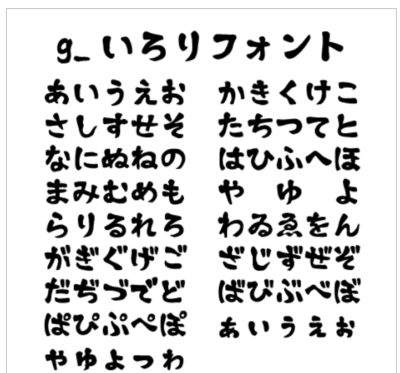 g_いろりフォント
あいうえお かきくけこ
さしすせそ たちつてと
なにぬねの はひふへほ
まみむめも や ゆ よ
らりるれろ わゐゑをん
がぎぐげご ざじずぜぞ
だぢづでど ばびぶべぼ
ぱぴぷぺぽ ぁぃぅぇぉ
ゃゅょっゎ